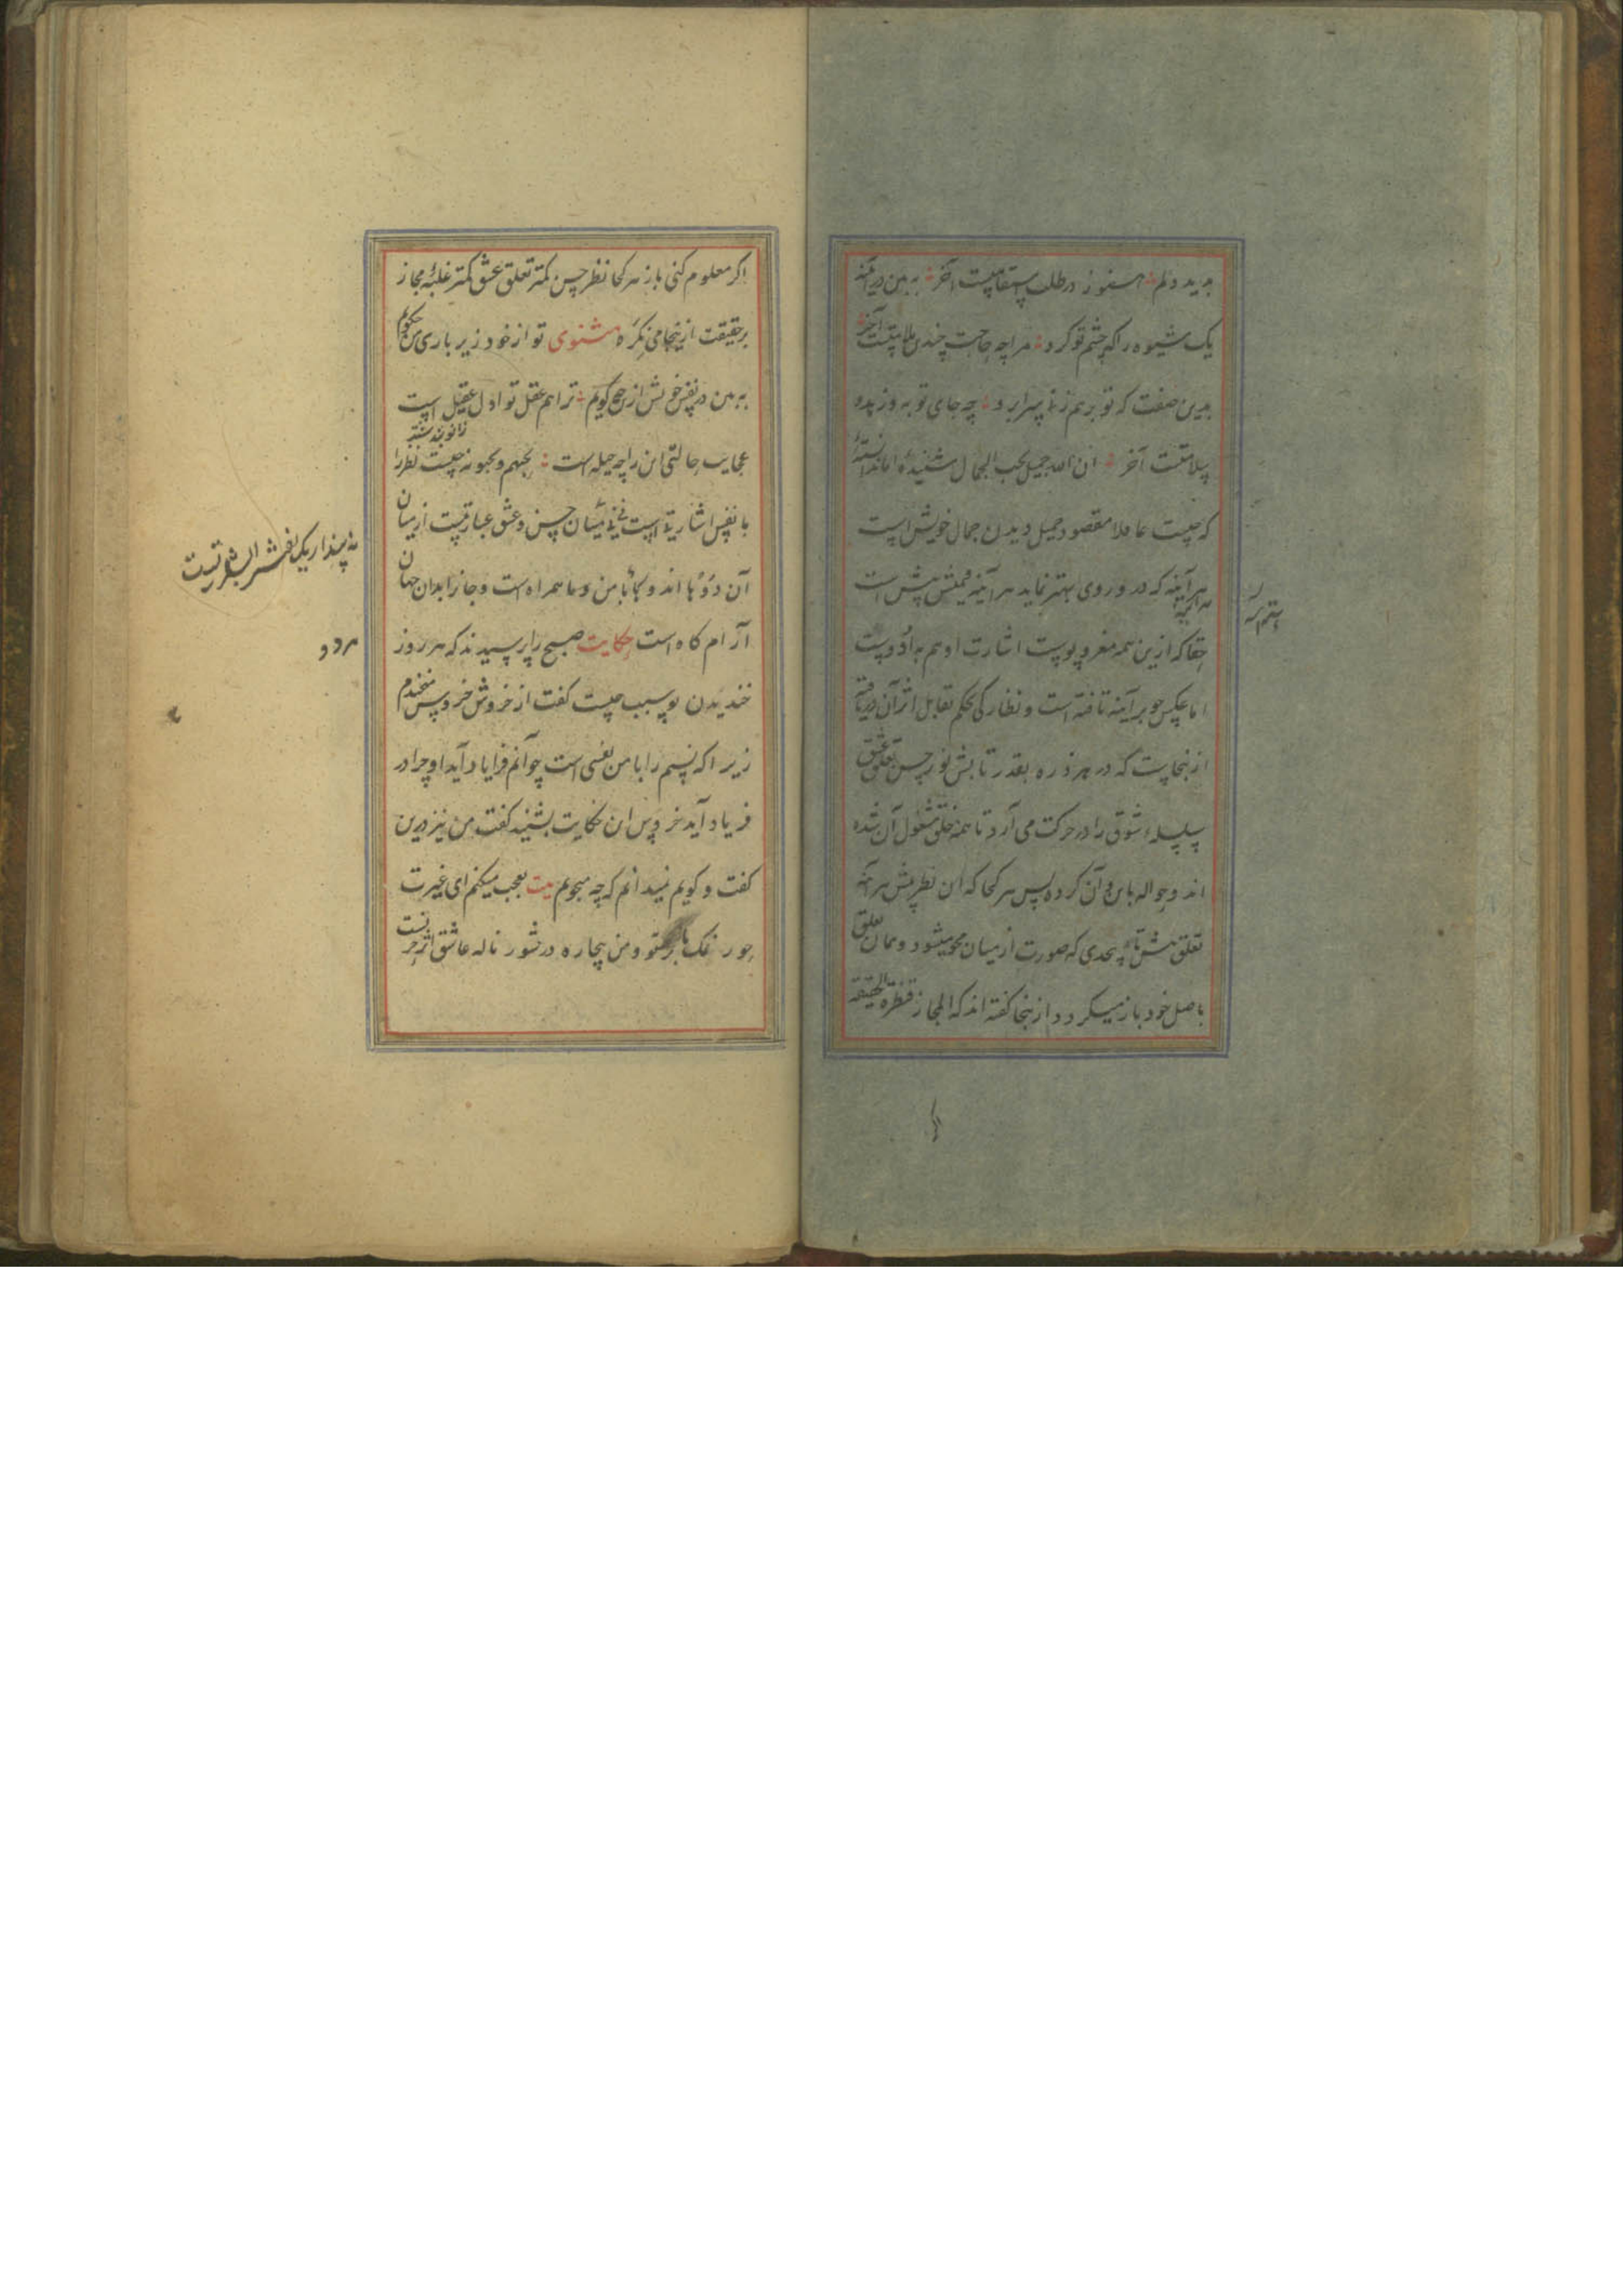 بدید دلم هنوز در طلب استقامتست آخر به بین در آینه
یک شیوه را که چشم تو کرد مرا چه حاجت چندین ملامتست آخر
بدین صفت که تو بر هم زنی سرابرد چه جای توبه و زهد و
سلامتست آخر ان الله جمیل یحب الجمال شنیدهٔ اما ندانستهٔ
که چیست عاملا مقصود جمیل دیدن جمال خویش است
هر آینه که در و روی بهتر نماید هر آینه قیمتش بیش است
حقا که ازین همه مغز و پوست اشارت او هم بدا دوست
اما عکس جو بر آینه تافته است و نظارکی بحکم تقابل اثر آن دریافته
ازینجاست که در هر ذره بقدر تابش نور حسن تعلق عشق
سلسله شوق را در حرکت می آرد تا همه خلق مشغول آن شده
اند و حواله باین و آن کرده پس هر کجا که این نظر بیش هر آینه
تعلق بیش تا بحدی که صورت از میان محو میشود و همان تعلق
باصل خود باز میکردد ازینجا کفته اند که المجاز قنطرة الحقیقة
اکر معلوم کنی باز هر کجا نظر حسن کمتر تعلق عشق کمتر غلبهٔ مجاز
بر حقیقت ازینجا می نکر مثنوی تو از خود زیر باری من حکویم
به بین در نفس خویش از حج کویم ترا هم عقل تو اول عقیل است
عجایب حالتی این را چه حیله است یحبهم و یحبونه چیست نظر را
با نفس اشارتی است نی نی میان حسن و عشق عبارتیست از میان
آن دوها اند و کجا با من و ما همراه است و جانرا بدان جهان
آرام کاه است حکایت صبح را پرسیدند که هر روز
خندیدن تو سبب چیست کفت از خروش خروس میخندم
زیرا که نسیم را با من نفسی است چو آنم فرا یاد آید او چرا در
فریاد آید خروس این حکایت بشنید کفت من نیز درین
کفت و کویم نمیدانم که چه میجویم بیت تعجب میکنم ای غیرت
حور نمک با تو و من بیچاره در شور ناله عاشق اثر
هر دو